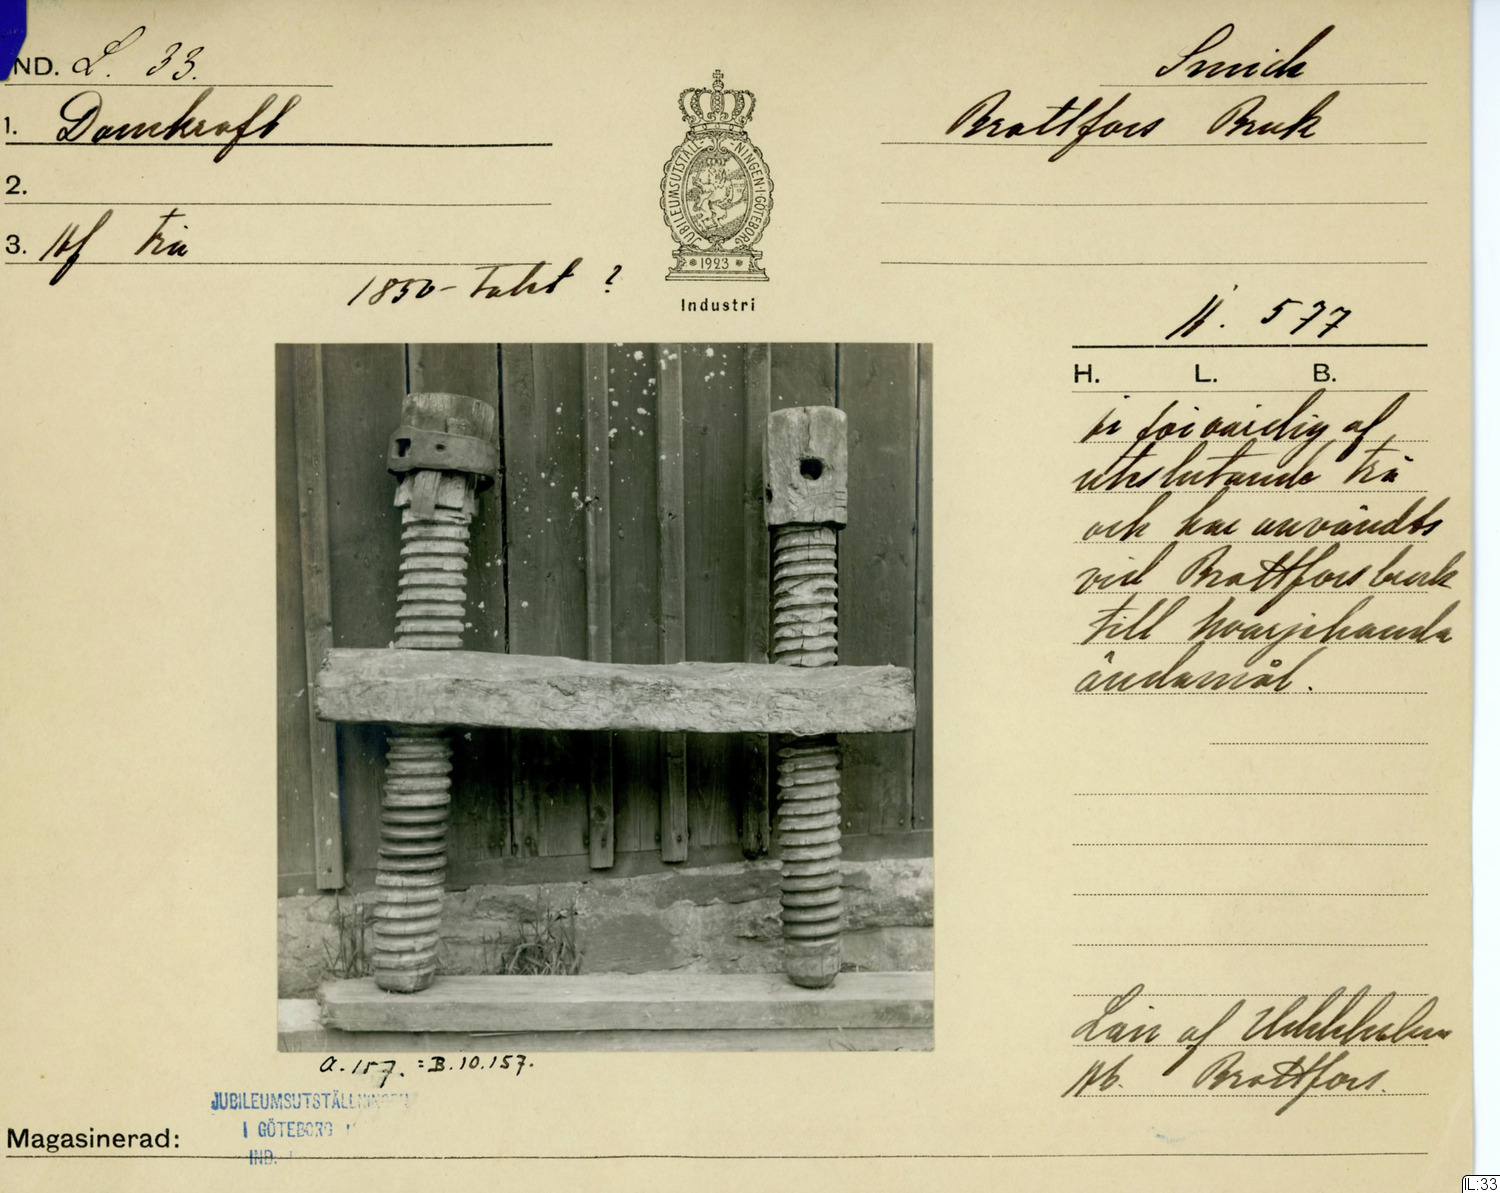 IND. L. 33.
Smide
1. Domkraft
Brattfors Bruk
2.
3. Af trä
1850-talet ?
JUBILEUMSUTSTÄLLNINGEN·I·GÖTEBORG
1923
Industri
A. 577
H. L. B.
är förfärdig af
uteslutande trä
och har användts
vid Brattforsbruk
till hvarjehanda
ändamål.
Lån af Uddeholms
Ab. Brattfors.
a.157. = B.10.157.
JUBILEUMSUTSTÄLLNINGEN
I GÖTEBORG
IND.
Magasinerad:
IL:33